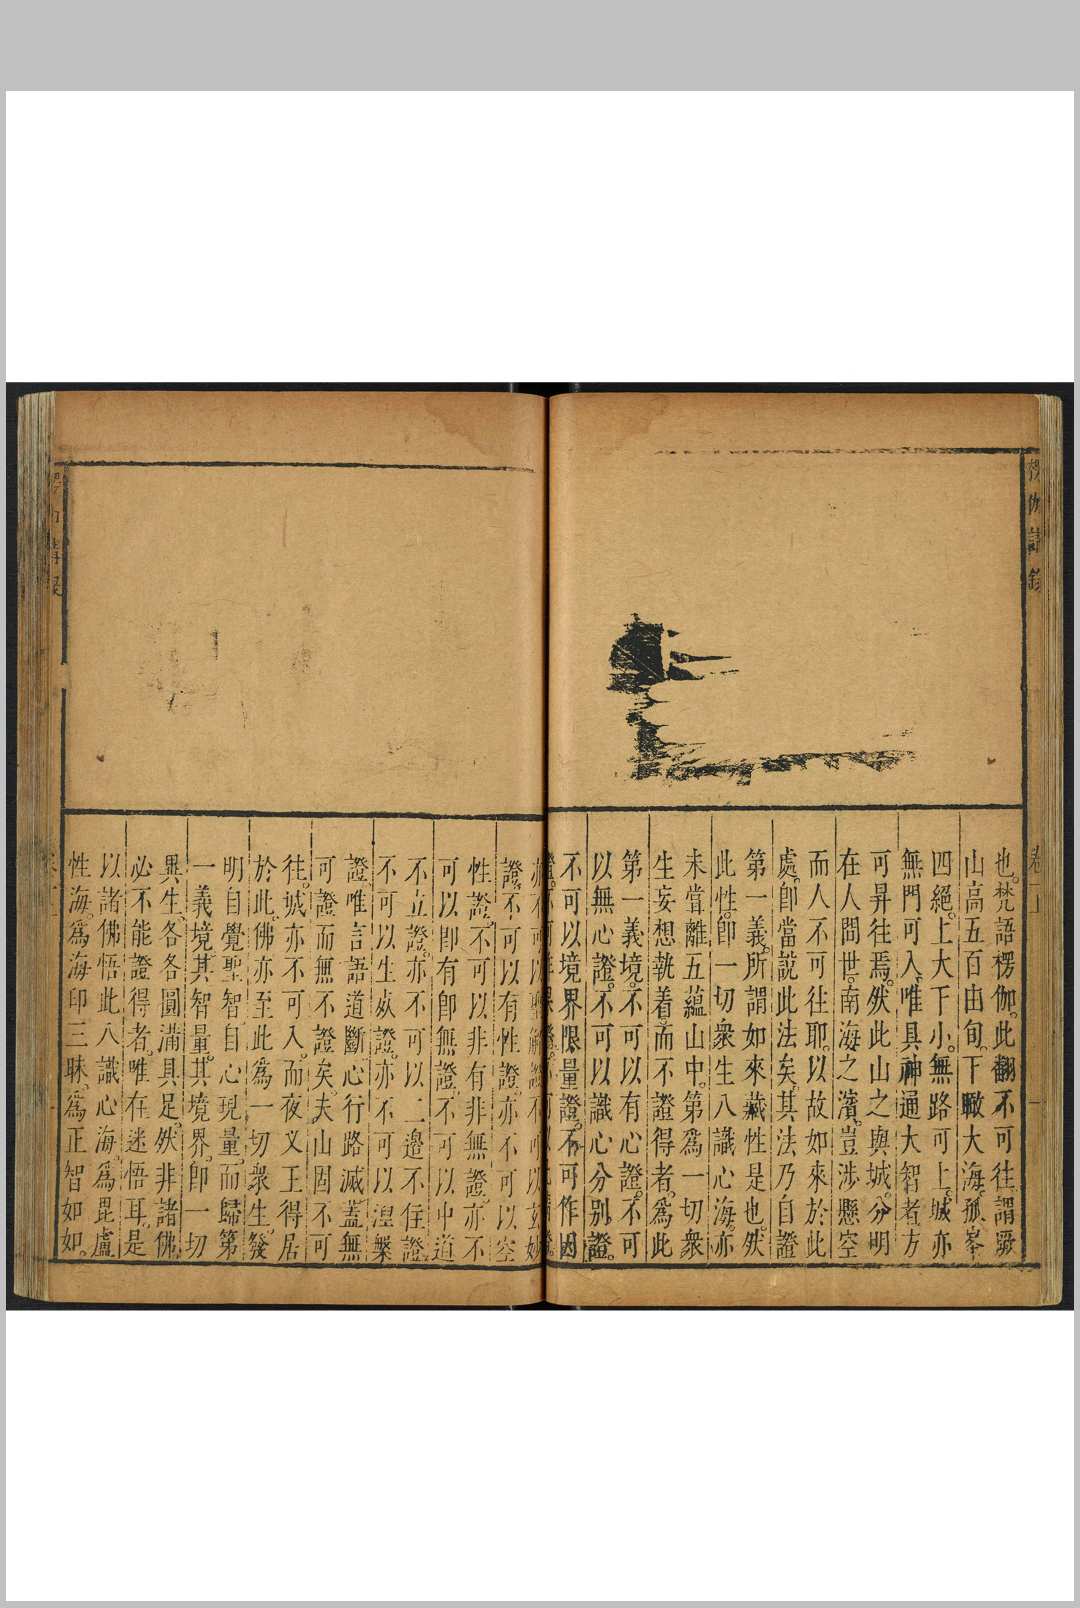 楞伽記錄
卷一上
也。梵語楞伽。此翻不可往。謂巖
山高五百由旬。下瞰大海。孤峯
四絕。上大下小。無路可上。城亦
無門可入。唯具神通大智者。方
可昇往焉。然此山之與城。分明
在人間世。南海之濱。豈涉懸空
而人不可往耶。以故如來於此
處。卽當說此法矣。其法乃自證
第一義。所謂如來藏性是也。然
此性。卽一切衆生八識心海。亦
未嘗離五蘊山中。第爲一切衆
生妄想執着。而不證得者。爲此
第一義境。不可以有心證。不可
以無心證。不可以識心分別證。
不可以境界限量證。不可作因
證。不可以有性證。亦不可以空
性證。不可以非有非無證。亦不
可以卽有卽無證。不可以中道
不立證。亦不可以二邊不住證。
不可以生死證。亦不可以涅槃
證。唯言語道斷。心行路滅。蓋無
可證而無不證矣。夫山固不可
往。城亦不可入。而夜叉王得居
於此。佛亦至此。爲一切衆生。發
明自覺聖智自心現量。而歸第
一義境。其智量。其境界。卽一切
異生。各各圓滿具足。然非諸佛
必不能證得者。唯在迷悟耳。是
以諸佛悟此八識心海。爲毘盧
性海。爲海印三昧。爲正智如如。